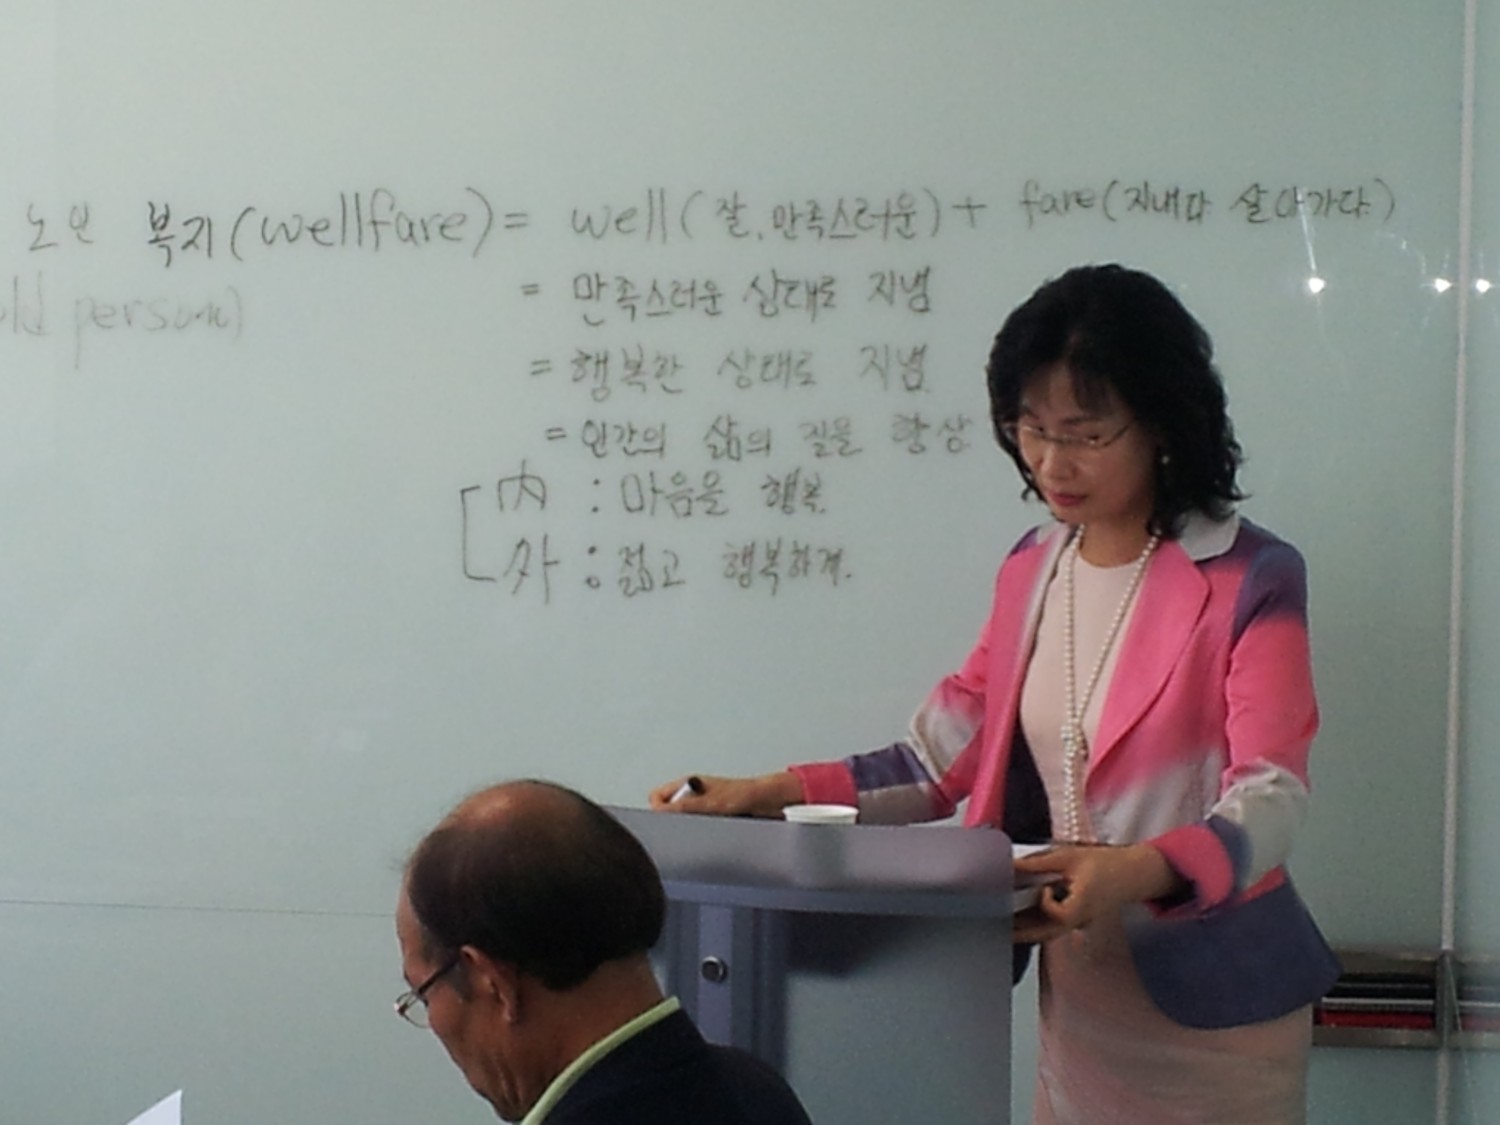 노인 복지(wellfare) = well(잘, 만족스러운) + fare(지내다 살아가다)
old person)
= 만족스러운 상태로 지냄
= 행복한 상태로 지냄.
= 인간의 삶의 질을 향상
內 : 마음을 행복.
外 : 젊고 행복하게.